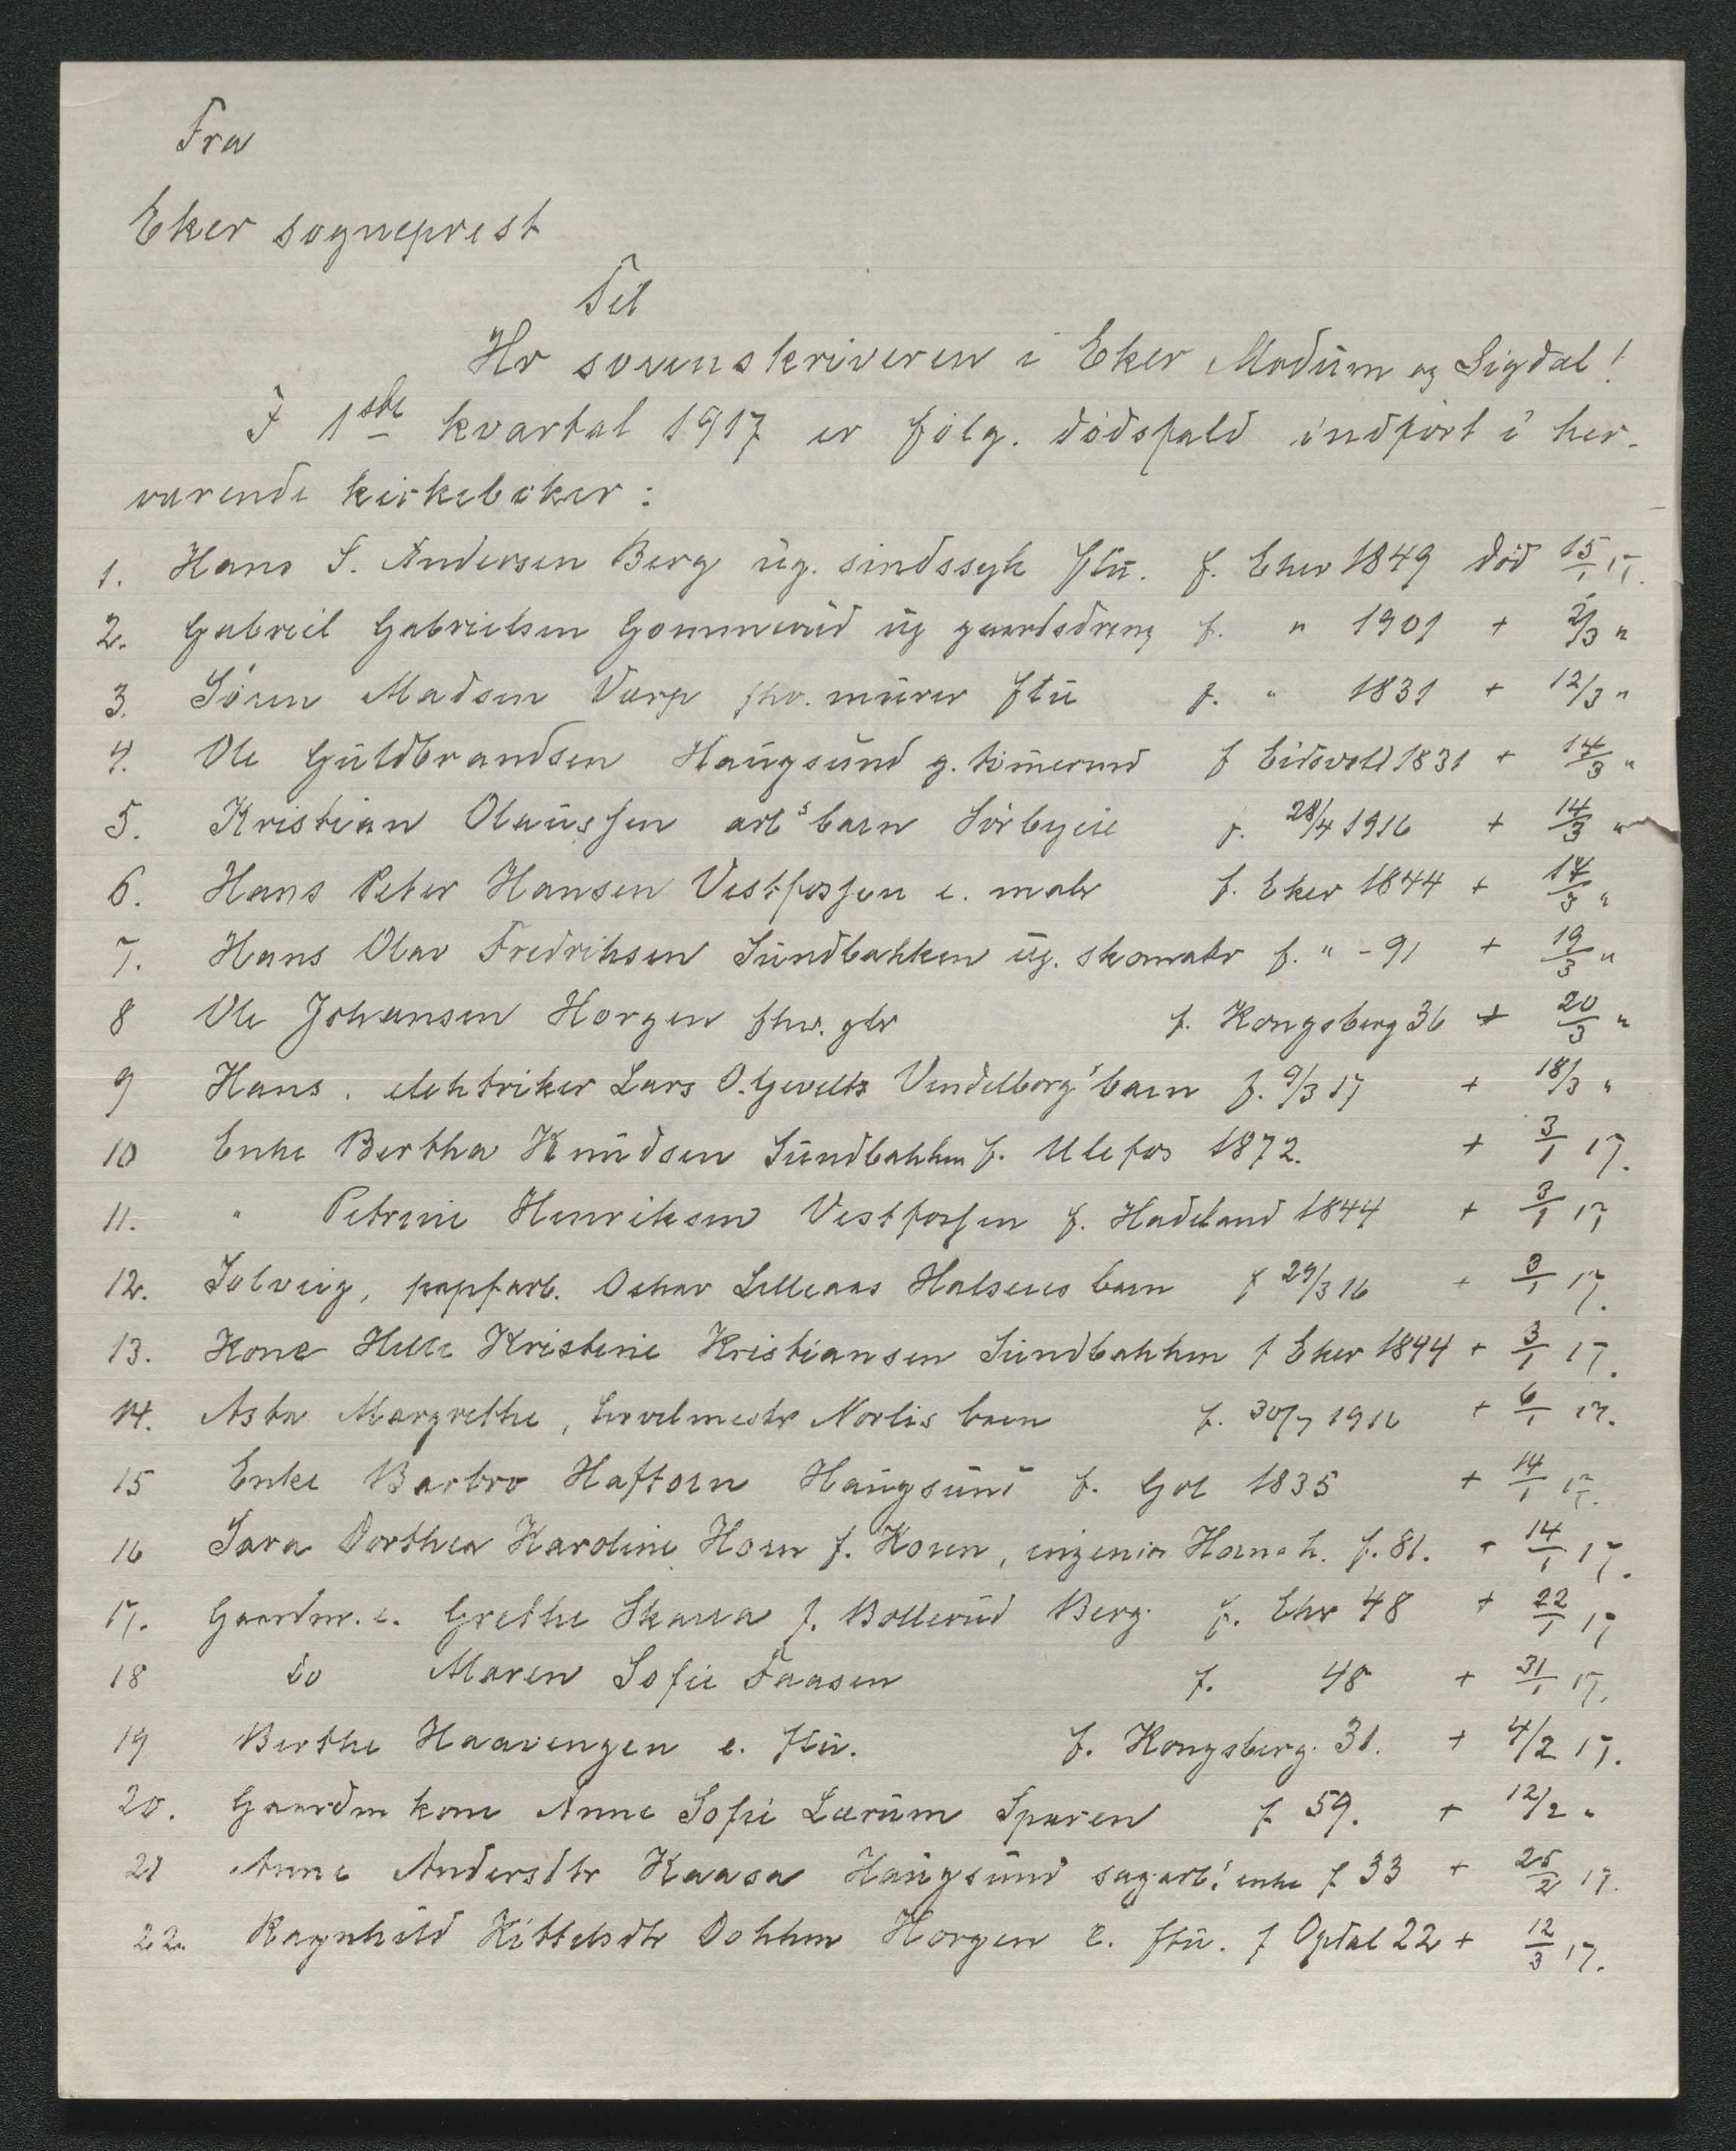 Fra
Eker sogneprest
Til
Hr sorenskriveren i Eker Modum og Sigdal!
I 1ste kvartal 1917 er følg. dødsfald indført i her-
værende kirkebøker:
1. Hans S. Andersen Berg ug. sindssyk ftu. f. Eker 1849 død 15/1 17.
2. Gabriel Gabrielsen Gommerud ug gaardsdreng f. " 1901 + 2/3 "
3. Søren Madsen Varp fhv. murer ftu f. " 1831 + 12/3 "
4. Ole Guldbrandsen Haugsund g. tømmermd f Eidsvold 1831 + 14/3 "
5. Kristian Olaussen arbs barn Sörbyeie f. 28/4 1916 + 14/3 "
6. Hans Peter Hansen Vestfossen e. maler f. Eker 1844 + 14/3 "
7. Hans Olav Fredriksen Sundbakken ug. skomaker f. " - 91 + 19/3 "
8 Ole Johansen Horgen fhv. gbr f. Kongsberg 36 + 20/3 "
9 Hans, elektriker Lars O. Gevelts Vendelborgs barn f. 9/3 17 + 18/3 "
10 Enke Bertha Knudsen Sundbakken f. Ulefos 1872. + 3/1 17.
11. " Petrine Henriksen Vestfossen f. Hadeland 1844 + 3/1 17
12. Solveig, papfarb. Oskar Lilleaas Halseies barn f 29/3 16 + 3/1 17.
13. Kone Helle Kristine Kristiansen Sundbakken f Eker 1844 + 3/1 17.
14. Asta Margrethe, hovelmester Norlis barn f. 30/7 1916 + 6/1 17.
15 Enke Barbro Haftorn Haugsund f. Gol 1835 + 14/1 17.
16 Sara Dorthea Karoline Horn f. Koren, ingeniør Horns h. f. 81. + 14/1 17.
17. Gaardm. e. Grethe Skarra f. Bollerud Berg f. Ekr 48 + 22/1 17
18 do Maren Sofie Faasen f. 48 + 31/1 17.
19 Berthe Haavengen e. ftu. f. Kongsberg. 31. + 4/2 17.
20. Gaardm kone Anne Sofie Lærum Sparen f 59. + 12/2 "
21 Anne Andersdtr Kaasa Haugsund sagarb.s enke f 33 + 25/2 17.
22. Ragnhild Kittelsdtr Dokken Horgen e. ftu. f Opdal 22 + 12/3 17.